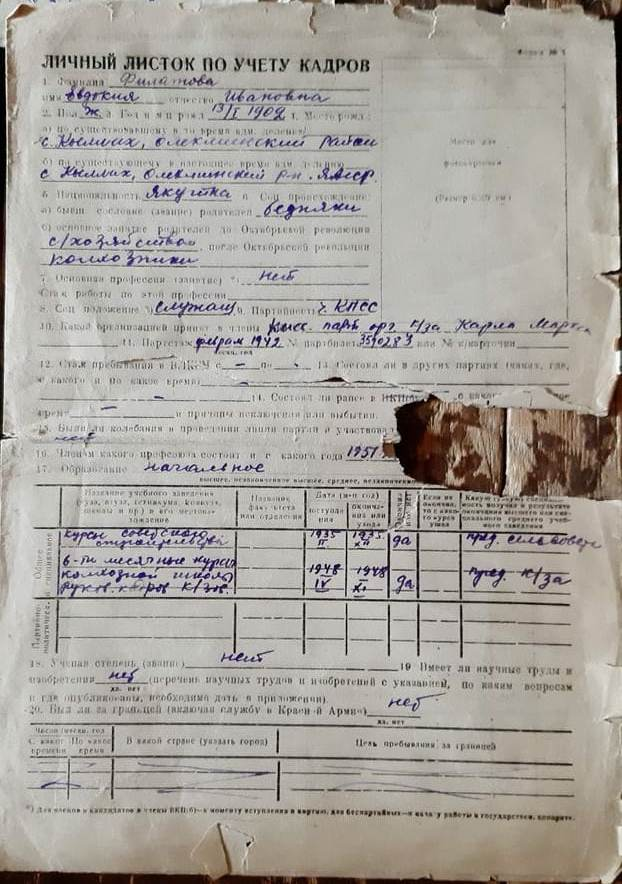 Форма № 1
ЛИЧНЫЙ ЛИСТОК ПО УЧЕТУ КАДРОВ
1. Фамилия Филатова
имя Евдокия отчество Ивановна
2. Пол ж 3. Год и м-ц рожд. 13/I 1902 г. Место рожд.:
а) по существовавшему в то время адм. делению
с. Кыллах, Олекминский район
б) по существующему в настоящее время адм. делению
с Кыллах, Олекминский р-н. ЯАССР
Место для
фотокарточки
5. Национальность Якутка 6. Соц происхождение:
а) бывш сословие (звание) родителей бедняки
б) основное занятие родителей до Октябрьской революции
с/хозяйством, после Октябрьской революции
колхозники
7. Основная профессия (занятие) *) нет
Стаж работы по этой профессии
8. Соц положение *) служащ 9. Партийность ч. КПСС
10. Какой организацией принят в члены Кылл. парт орг к/за Карла Маркса
11. Партстаж феврал 1942 № партбилета или № к/карточки
месяц, год
12. Стаж пребывания в ВЛКСМ с – по – 13. Состоял ли в других партиях (каких, где,
с какого и по какое время)
14. Состоял ли ранее в ВКП(б)
время – и причины исключения или выбытия
15. Были ли колебания в проведении линии партии и участвовал
нет
16. Членом какого профсоюза состоит и с какого года 1951
17. Образование начальное
высшее, незаконченное высшее, среднее, незаконченное
Название учебного заведения (вуза, втуза, техникума, комвуза, школы и пр) и его местонахождение
Название факультета или отделения
Дата (м-ц год)
поступления
окончания или ухода
Если не окончил, то с какого курса ушел
Общее и специальное
курсы советского строительства 1935 II 1935 XII да пред. сельсовета
6-ти месячные курсы колхозной школы руков. кадров к/зов. 1948 IV 1948 XI да пред. к/за
Партийно-политическ.
18. Ученая степень (звание) нет 19 Имеет ли научные труды и
изобретения нет (перечень научных трудов и изобретений с указанием, по каким вопросам
да, нет
и где опубликованы, необходимо дать в приложении)
20. Был ли за границей (включая службу в Красн-й Армии) нет
да, нет
Число месяц, год
С какого времени
По какое время
В какой стране (указать город)
Цель пребывания за границей
*) Для членов и кандидатов в члены ВКП(б)—к моменту вступления в партию, для беспартийных—к началу работы в государствен. аппарате.